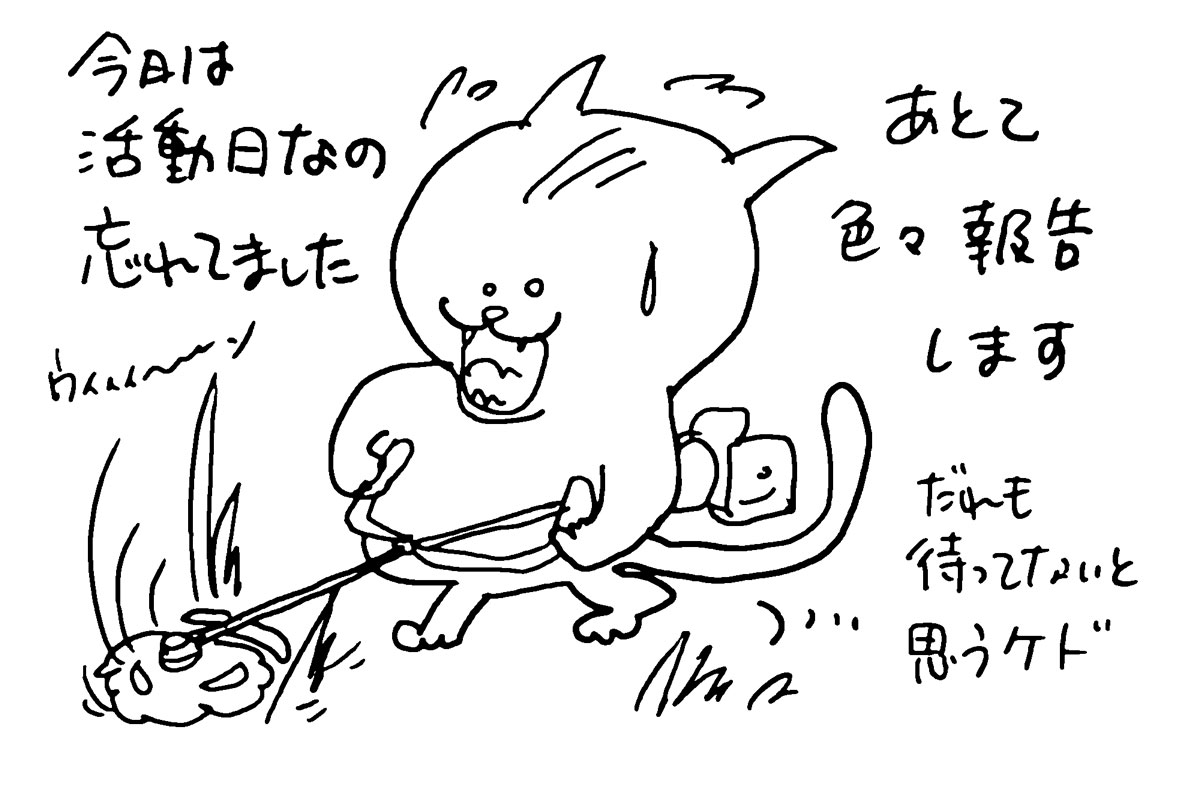 今日は
活動日なの
忘れてました
ウィィィーーン
あとで
色々報告
します
だれも
待ってないと
思うケド